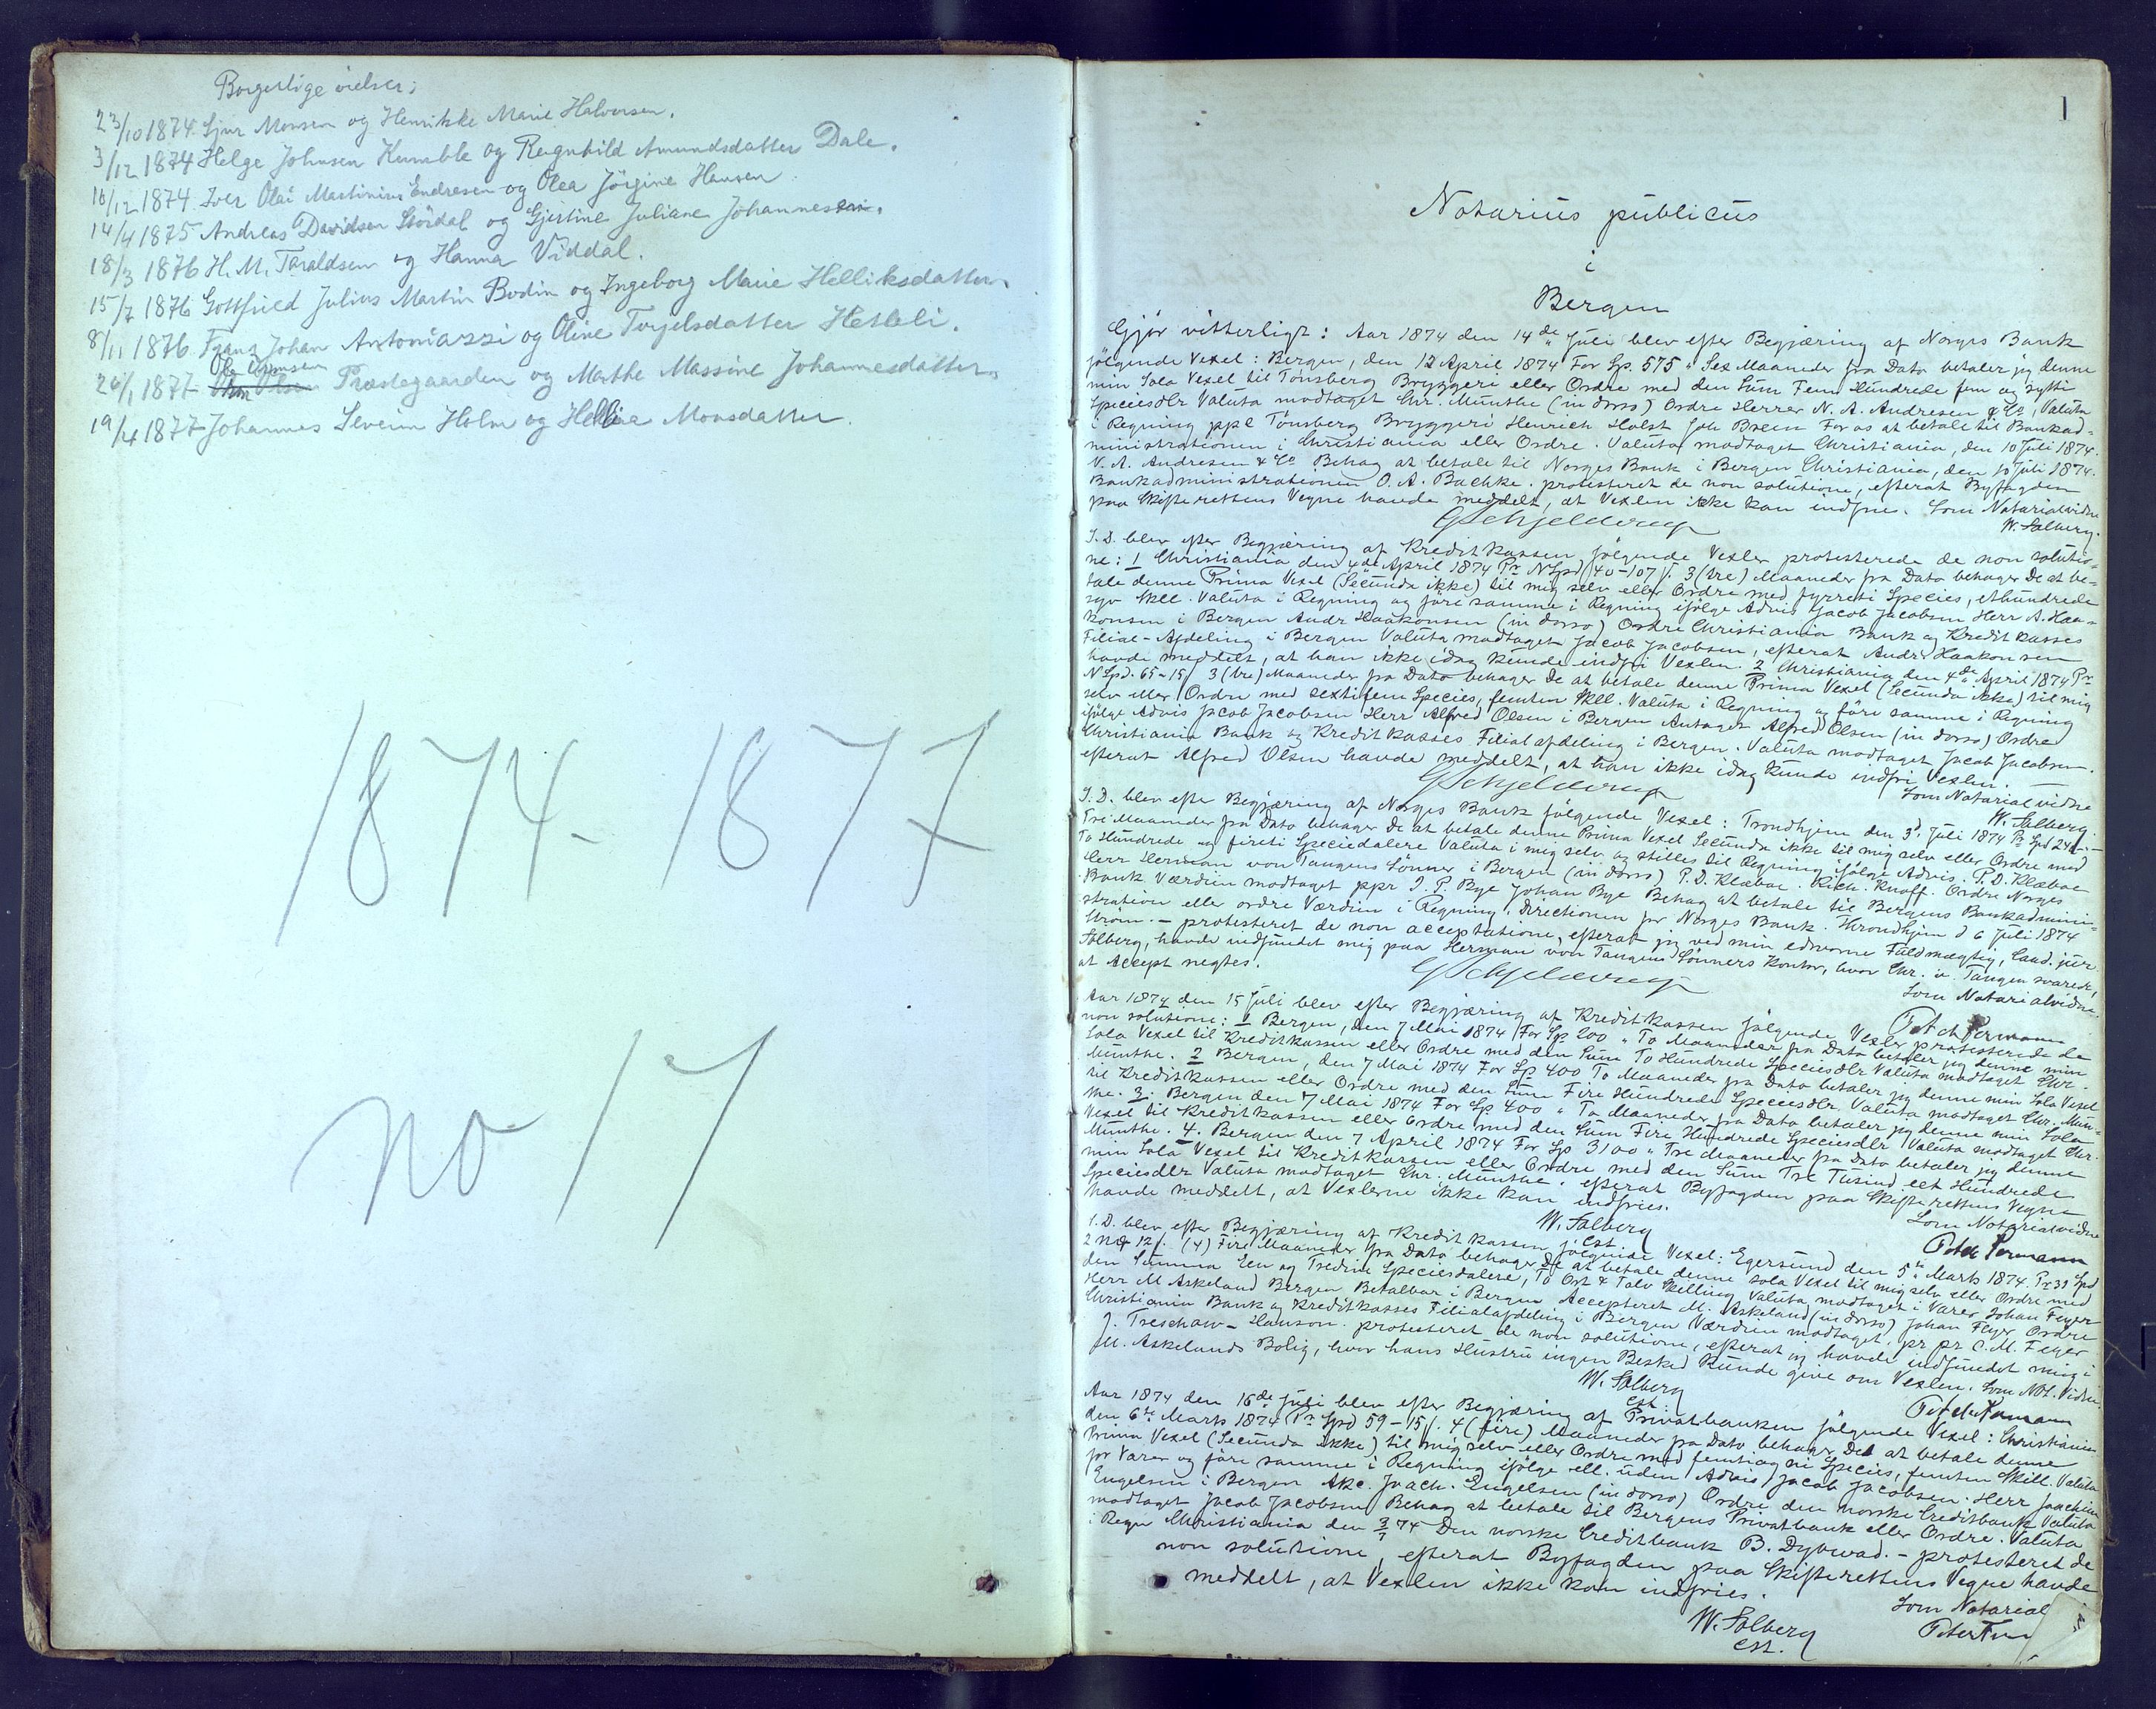 Borgerlige vielser:
23/10 1874 Sjur Monsen og Henrikke Marie Halvorsen.
3/12 1874 Helge Johnsen Kumble og Ragnhild Amundsdatter Dale.
16/12 1874 Iver Olai Martinius Endresen og Olea Jörgine Hansen
14/4 1875 Andreas Davidsen Stördal og Gjertine Juliane Johannesen.
18/3 1876 H. M. Taraldsen og Hanna Viddal.
15/7 1876 Gottfried Julius Martin Bodin og Ingeborg Marie Helliksdatter.
8/11 1876 Franz Johan Antoniazzi og Oline Torjelsdatter Hetleli.
26/1 1877 Præstegaarden og Marthe Massine Johannesdatter.
19/4 1877 Johannes Severin Holm og Hellina Monsdatter.
1874 - 1877
no 17
1
Notarius publicus
i
Bergen
Gjör vitterligt: Aar 1874 den 14de Juli blev efter Begjæring af Norges Bank
følgende Vexel: Bergen, den 12 April 1874 For Sp. 575 " Sex Maaneder fra Dato betaler jeg denne
min Sola Vexel til Tönsberg Bryggeri eller Ordre med den Sum Fem Hundrede fem og sytti
Speciesdlr Valuta modtaget Chr. Münthe (in dorso) Ordre Herrer N. A. Andresen & Co, Valuta
i Regning ppe Tønsberg Bryggeri Henrich Holst Joh Brein For os at betale til Bankad-
ministrationen i Christiania eller Ordre. Valuta modtaget Christiania, den 10 Juli 1874.
N. A. Andresen & Co Behag at betale til Norges Bank i Bergen Christiania, den 10 Juli 1874.
Bankadministrationen O. A. Bachke. protesteret de non solutione, efterat Byfogden
paa Skifterettens Vegne havde meddelt, at Vexlen ikke kan indfrie. Som Notarialvidne
GSchjelderup W. Solberg.
S. D. blev efter Begjæring af Kreditkassen følgende Vexler protesterede de non solutio-
ne: 1 Christiania den 4de April 1874 Pr. N Spd 40-107 ſ. 3 (tre) Maaneder fra Dato behager De at be-
tale denne Prima Vexel (Secunda ikke) til mig selv eller Ordre med fyrreti Species, ethundrede
syv Skll. Valuta i Regning og före samme i Regning ifølge Advis Jacob Jacobsen Herr A. Haa-
konsen i Bergen Andr Haakonsen (in dorso) Ordre Christiania Bank og Kreditkasses
Filial-Afdeling i Bergen Valuta modtaget Jacob Jacobsen, efterat Andr Haakonsen
havde meddelt, at han ikke idag kunde indfri Vexlen. 2 Christiania den 4de April 1874 Pr
N Spd. 65-15 ſ 3 (tre) Maaneder fra Dato behager De at betale denne Prima Vexel (Secunda ikke) til mig
selv eller Ordre med sextifem Species, femten Skll. Valuta i Regning og före samme i Regning
ifølge Advis Jacob Jacobsen Herr Alfred Olsen i Bergen Antaget Alfred Olsen (in dorso) Ordre
Christiania Bank og Kreditkasses Filialafdeling i Bergen. Valuta modtaget Jacob Jacobsen.
efterat Alfred Olsen havde meddelt, at han ikke idag kunde indfri Vexlen.
GSchjelderup Som Notarialvidne
W. Solberg.
S. D. blev efter Begjæring af Norges Bank følgende Vexel: Trondhjem den 3d. Juli 1874 Pr Spd 240.-
Tre Maaneder fra Dato behager De at betale denne Prima Vexel Secunda ikke til mig selv eller Ordre med
To Hundrede og fireti Speciedalere Valuta i mig selv og stilles til Regning ifølge Advis. P. D. Klæboe
Herr Herman von Tangens Sønner i Bergen (in dorso) P. D. Klæboe. Rich. Knoff. Ordre Norges
Bank Værdien modtaget ppr I. P. Bye Johan Bye Behag at betale til Bergens Bankadmini-
stration eller ordre Værdien i Regning, Directionen for Norges Bank. Throndhjem d 6 Juli 1874
Strøm. - protesteret de non acceptatione, efterat jeg ved min edsvorne Fuldmægtig, Cand. jur.
Solberg, havde indfundet mig paa Herman von Tangens Sønners Kontor, hvor Chr. v. Tangen svarede,
at Accept negtes. GSchjelderup Som Notarialvidne
Aar 1874 den 15 Juli blev efter Begjæring af Kreditkassen følgende Vexler protesterede de
non solutione: 1 Bergen, den 7 Mai 1874 For Sp 200 " To Maaneder fra Dato betaler jeg denne min
Sola Vexel til Kreditkassen eller Ordre med den Sum To Hundrede Speciesdlr Valuta modtaget Chr.
Münthe. 2 Bergen, den 7 Mai 1874 For Sp 400 To Maaneder fra Dato betaler jeg denne min Sola Vexel
til Kreditkassen eller Ordre med den Sum Fire Hundrede Speciesdlr. Valuta modtaget Chr. Mün-
the. 3. Bergen den 7 Mai 1874 For Sp 400 " To Maaneder fra Dato betaler jeg denne min Sola
Vexel til Kreditkassen eller Ordre med den Sum Fire Hundrede Speciesdlr Valuta modtaget Chr.
Münthe. 4. Bergen den 7 April 1874 For Sp 3100 " Tre Maaneder fra Dato betaler jeg denne
min Sola Vexel til Kreditkassen eller Ordre med den Sum Tre Tusind eet Hundrede
Speciesdlr Valuta modtaget Chr. Münthe. efterat Byfogden paa Skifterettens Vegne
havde meddelt, at Vexlerne ikke kan indfries. Som Notarialvidne
W. Solberg
cst.
S. D. blev efter Begjæring af Kreditkassen følgende Vexel: Egersund den 5te Marts 1874. Pr 31 Spd
2 12 ſ. (4) Fire Maaneder fra Dato behager De at betale denne sola Vexel til mig selv eller Ordre med
den Summa Een og Tredive Speciesdalere, To Ort & Tolv Skilling Valuta modtaget i Varer Johan Feyer
Herr M Askeland Bergen Betalbar i Bergen Accepteret M. Askeland (in dorso) Johan Feyer Ordre
Christiania Bank og Kreditkasses Filialafdeling i Bergen Værdien modtaget, pr pr C. M. Feyer
J. Treschow-Hanson. protesteret de non solutione, efterat jeg havde indfundet mig i
M. Askelands Bolig, hvor hans Hustru ingen Besked kunde give om Vexlen. Som Not. Vidne.
W. Solberg
cst.
Aar 1874 den 16de Juli blev efter Begjæring af Privatbanken følgende Vexel: Christiania
den 6te Marts 1874 Pr Spd 59-15 ſ. 4 (fire) Maaneder fra Dato behager De at betale denne
Prima Vexel (Secunda ikke) til mig selv eller Ordre med femti og ni Species, femten Skill. Valuta
for Varer og före samme i Regning ifølge ell. uden Advis Jacob Jacobsen. Herr Joachim
Engelsen i Bergen Akc. Joach. Engelsen (in dorso) Ordre den norske Creditbank Valuta
modtaget Jacob Jacobsen Behag at betale til Bergens Privatbank eller Ordre. Valuta
i Regn Christiania den 3/7 74 Den norske Creditbank B. Dybwad. - protesteret de
non solutione, efterat Byfogden paa Skifterettens Vegne havde
meddelt, at Vexlen ikke kan indfries.
Som Notarial
W. Solberg
cst.